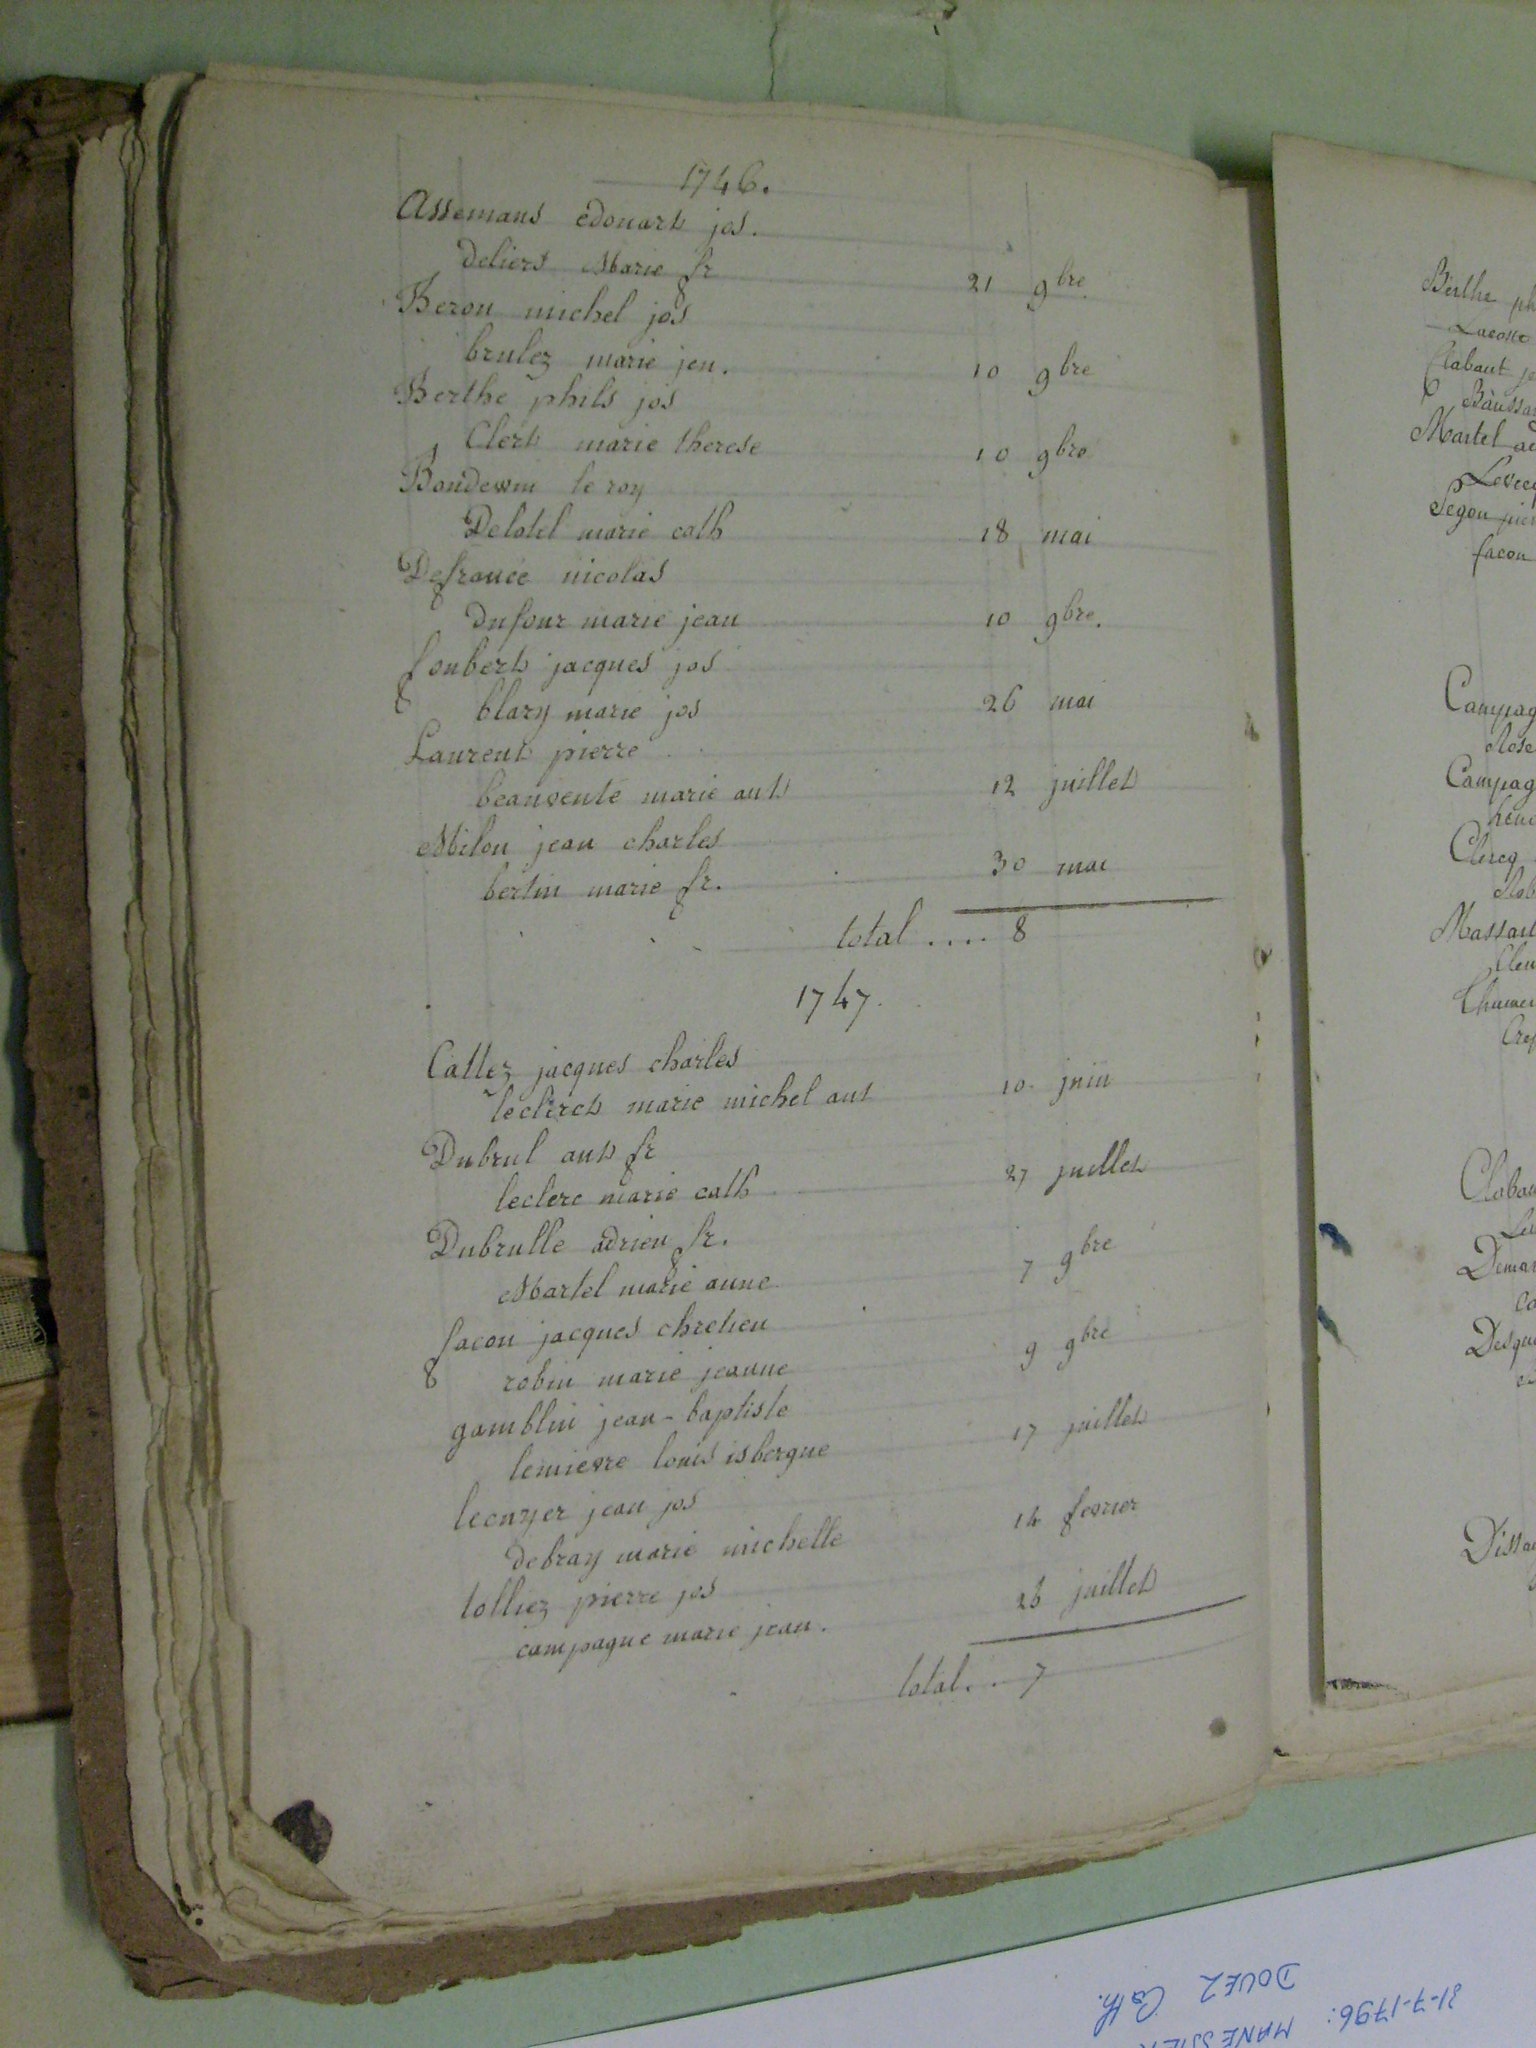 1746.
Assemans edouart jos.
deliers Marie fr 21 9bre
Beron michel jos
brulez marie jen. 10 9bre
Berthe phils jos
Clert marie therese 10 9bre
Boudewin le roy
Delotel marie cath 18 mai
Defrance nicolas
dufour marie jean 10 9bre.
foubert jacques jos
blary marie jos 26 mai
Laurent pierre
beauvente marie ant 12 juillet
Milon jean charles
bertin marie fr. 30 mai
total .... 8
1747.
Callez jacques charles
leclerct marie michel ant 10 juin
Dubrul ant fr
leclerc marie cath 27 juillet
Dubrulle adrien fr.
Martel marie anne 7 9bre
facon jacques chretien
robin marie jeanne 9 9bre
gamblin jean-baptiste
lemievre louis isbergue 17 juillet
lecuyer jean jos
debray marie michelle 14 fevrier
tolliez pierre jos
campagne marie jean. 26 juillet
total... 7
Berthe ph
Lacoste
Clabaut je
Baussar
Martel ad
Levecq
Segon pier
facon
Campag
Rose
Campag
Clercq
Rob
Massart
Clem
Demar
Desque
Dissa
31-7-1796:
DOUEZ Cath.